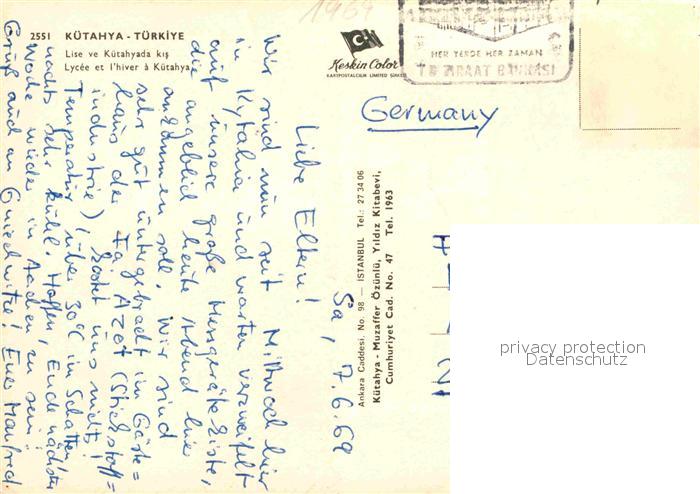 1969
2551 KÜTAHYA - TÜRKİYE
Lise ve Kütahyada kış
Lycée et l'hiver à Kütahya
Keskin Color
KARTPOSTALCILIK LIMITED ŞIRKETİ
HER YERDE HER ZAMAN
ZIRAAT BANKASI
Germany
Sa, 7.6.69
Liebe Eltern!
Wir sind nun seit Mittwoch hier
in Kytahia und warten verzweifelt
auf unsere große Messgerätekiste,
die angeblich heute Abend hier
ankommen soll. Wir sind
sehr gut untergebracht im Gäste=
haus der Fa. Azot (Stickstoff=
industrie), kostet uns nichts!
Temperatur über 30°C im Schatten
nachts sehr kühl. Hoffen, Ende nächster
Woche wieder in Aachen zu sein!
Gruß auch an Euer Manfred
Ankara Caddesi, No. 98 — ISTANBUL Tel.: 27 34 06
Kütahya - Muzaffer Özünlü, Yıldız Kitabevi,
Cumhuriyet Cad. No. 47 Tel. 1963
privacy protection
Datenschutz